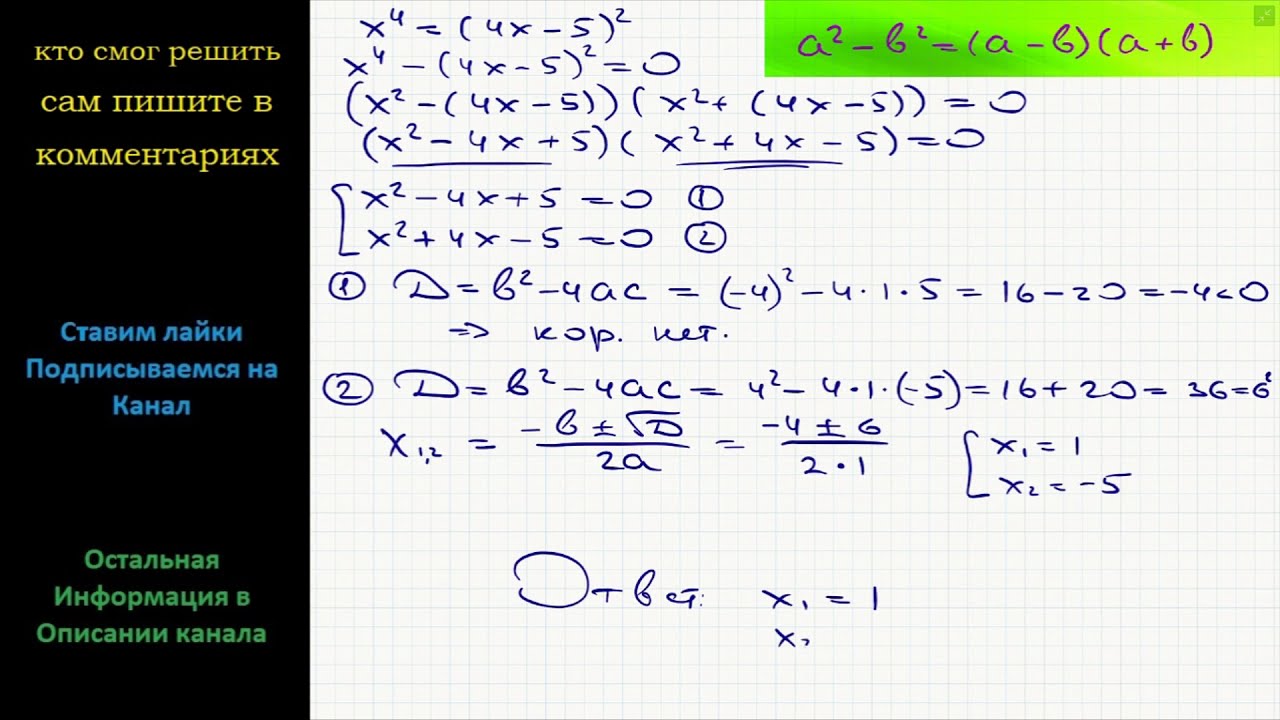 кто смог решить
сам пишите в
комментариях
Ставим лайки
Подписываемся на
Канал
Остальная
Информация в
Описании канала
x⁴ = (4x − 5)²
a² − b² = (a − b)(a + b)
x⁴ − (4x − 5)² = 0
(x² − (4x − 5))(x² + (4x − 5)) = 0
(x² − 4x + 5)(x² + 4x − 5) = 0
[ x² − 4x + 5 = 0 ①
x² + 4x − 5 = 0 ②
① D = b² − 4ac = (−4)² − 4·1·5 = 16 − 20 = −4 < 0
⇒ кор. нет.
② D = b² − 4ac = 4² − 4·1·(−5) = 16 + 20 = 36 = 6²
x₁,₂ = (−b ± √D)/(2a) = (−4 ± 6)/(2·1) [ x₁ = 1
x₂ = −5
Ответ: x₁ = 1
x₂